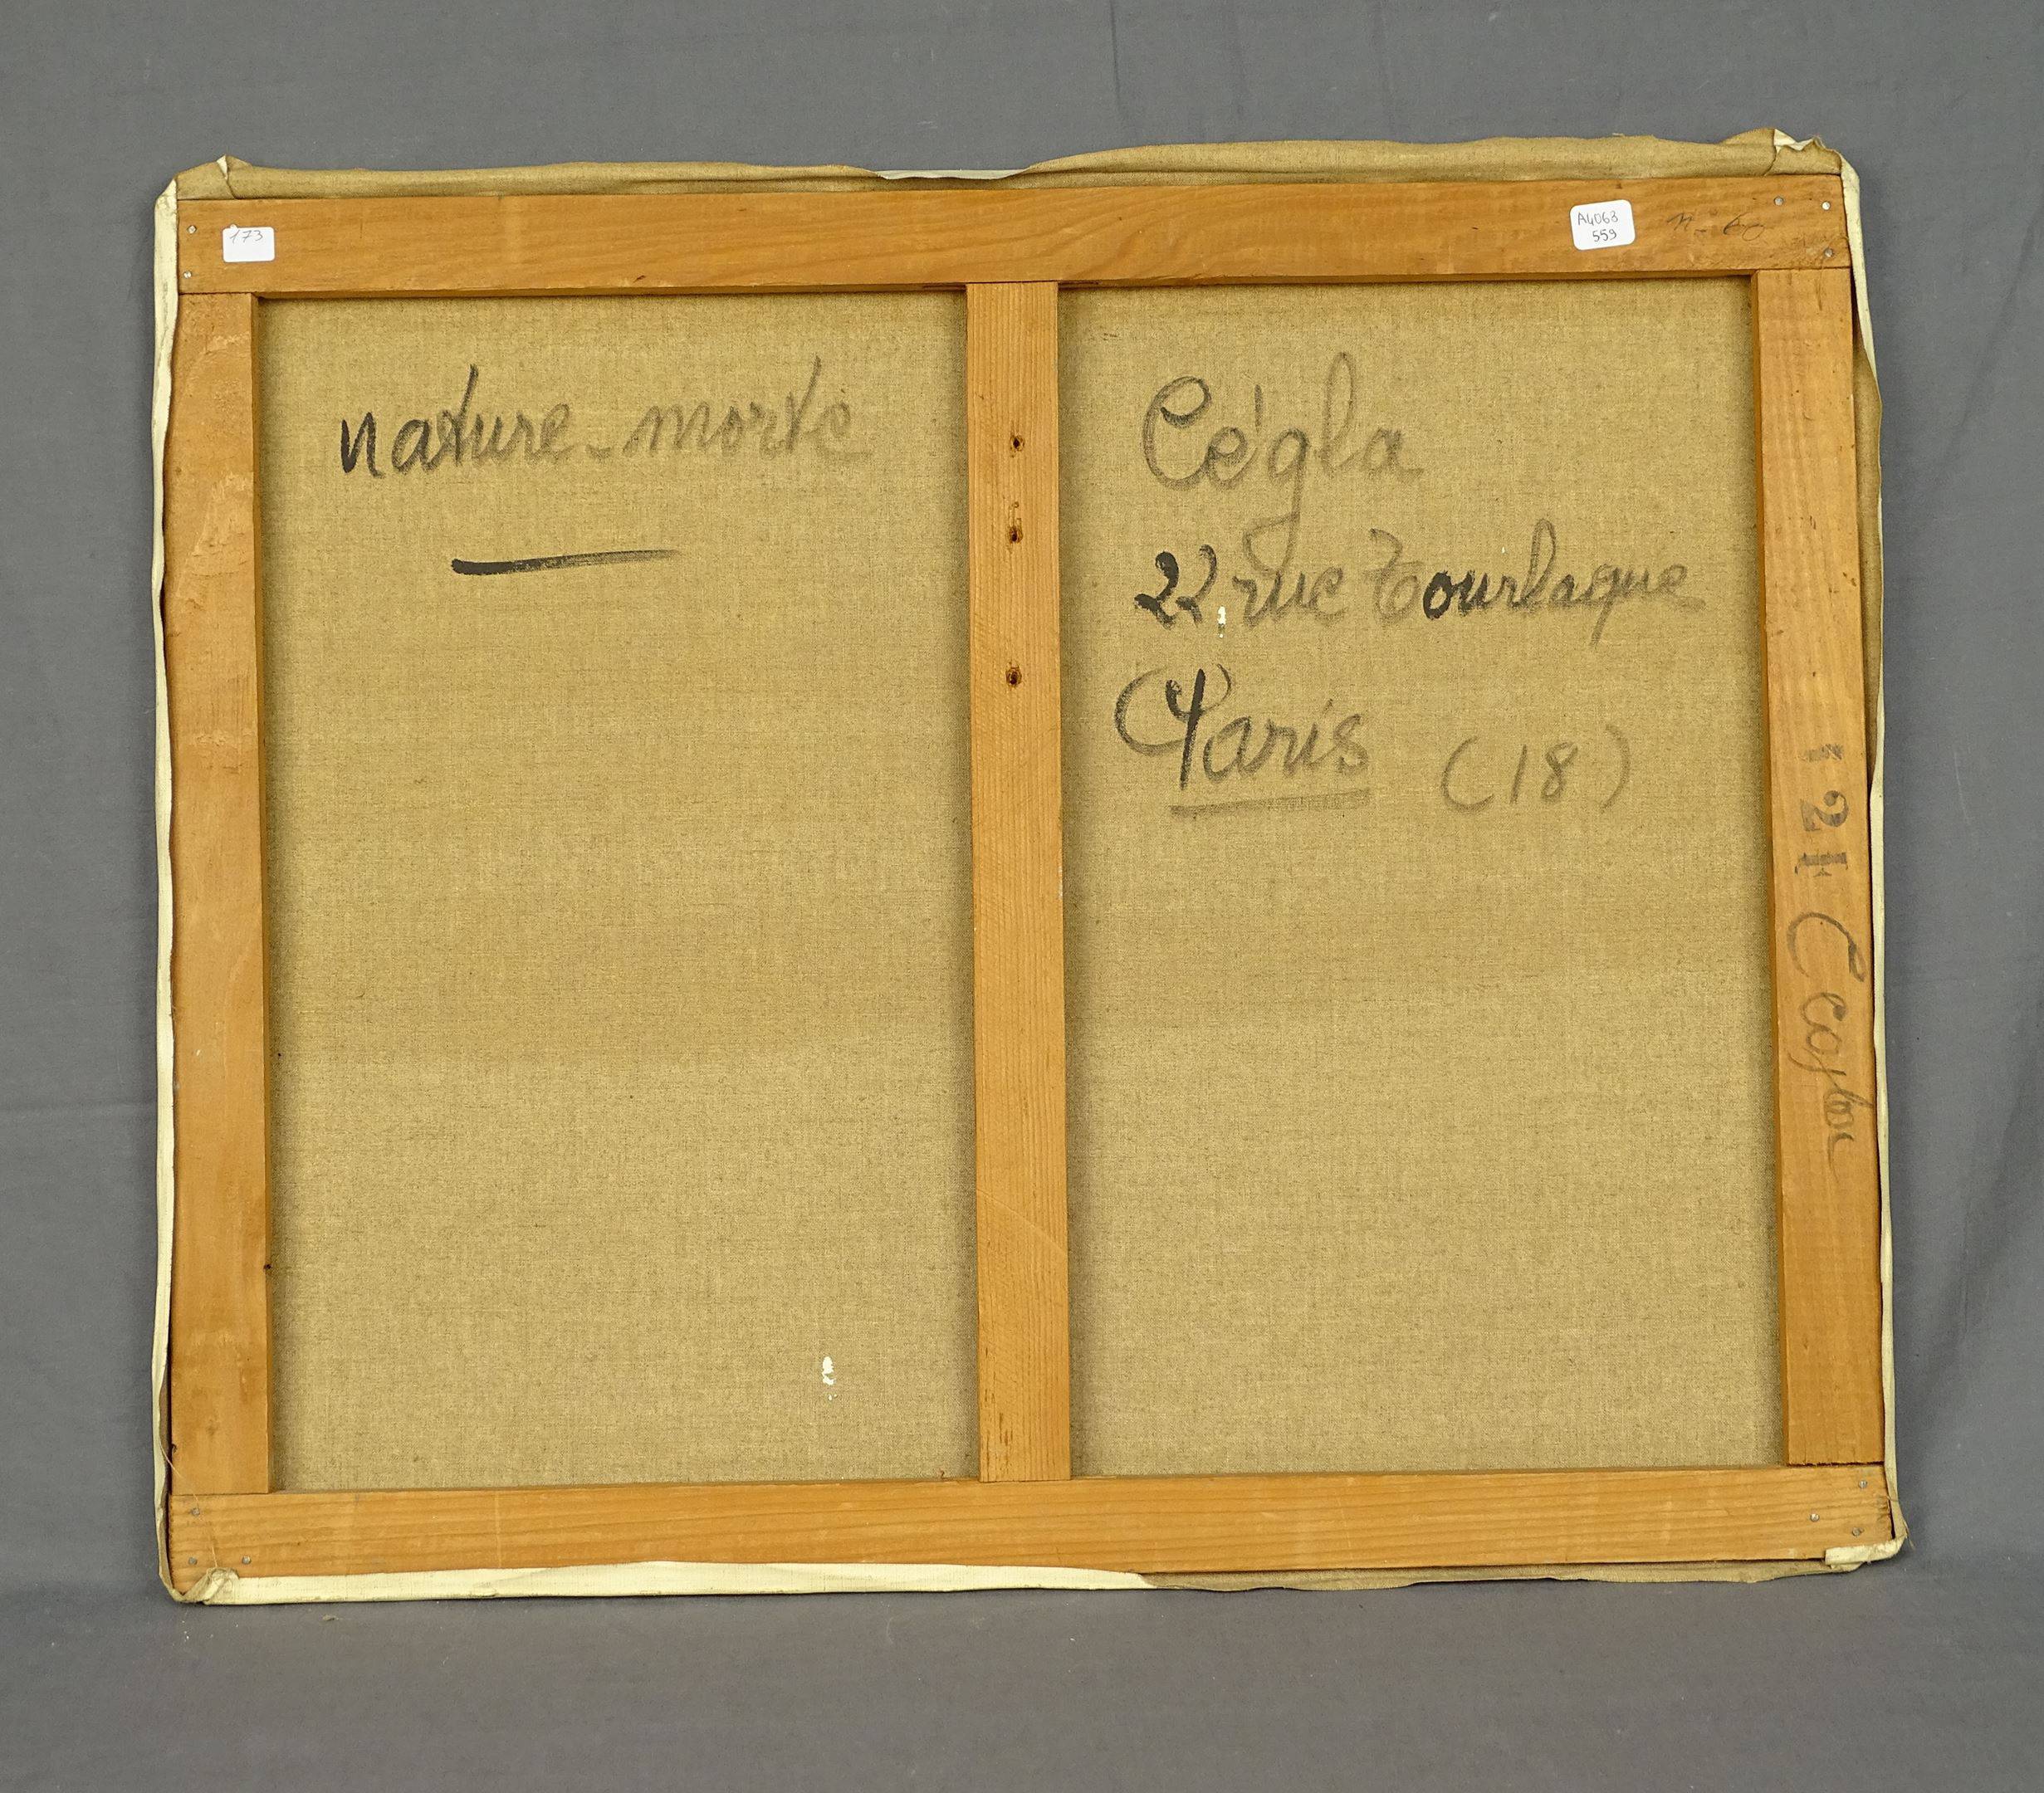 173
A4063
559
nature-morte
Cégla
22 rue Tourlaque
Paris (18)
121 Cegla